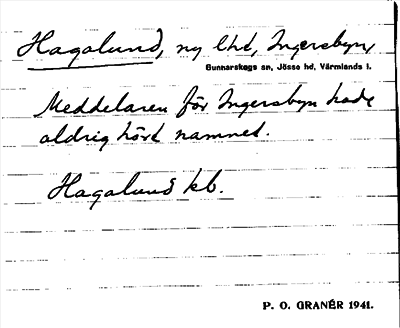 Hagalund, ny lhd, Ingersbyn,
Gunnarskogs sn, Jösse hd, Värmlands l.
Meddelaren för Ingersbyn hade
aldrig hört namnet.
Hagalund kb.
P. O. GRANÉR 1941.